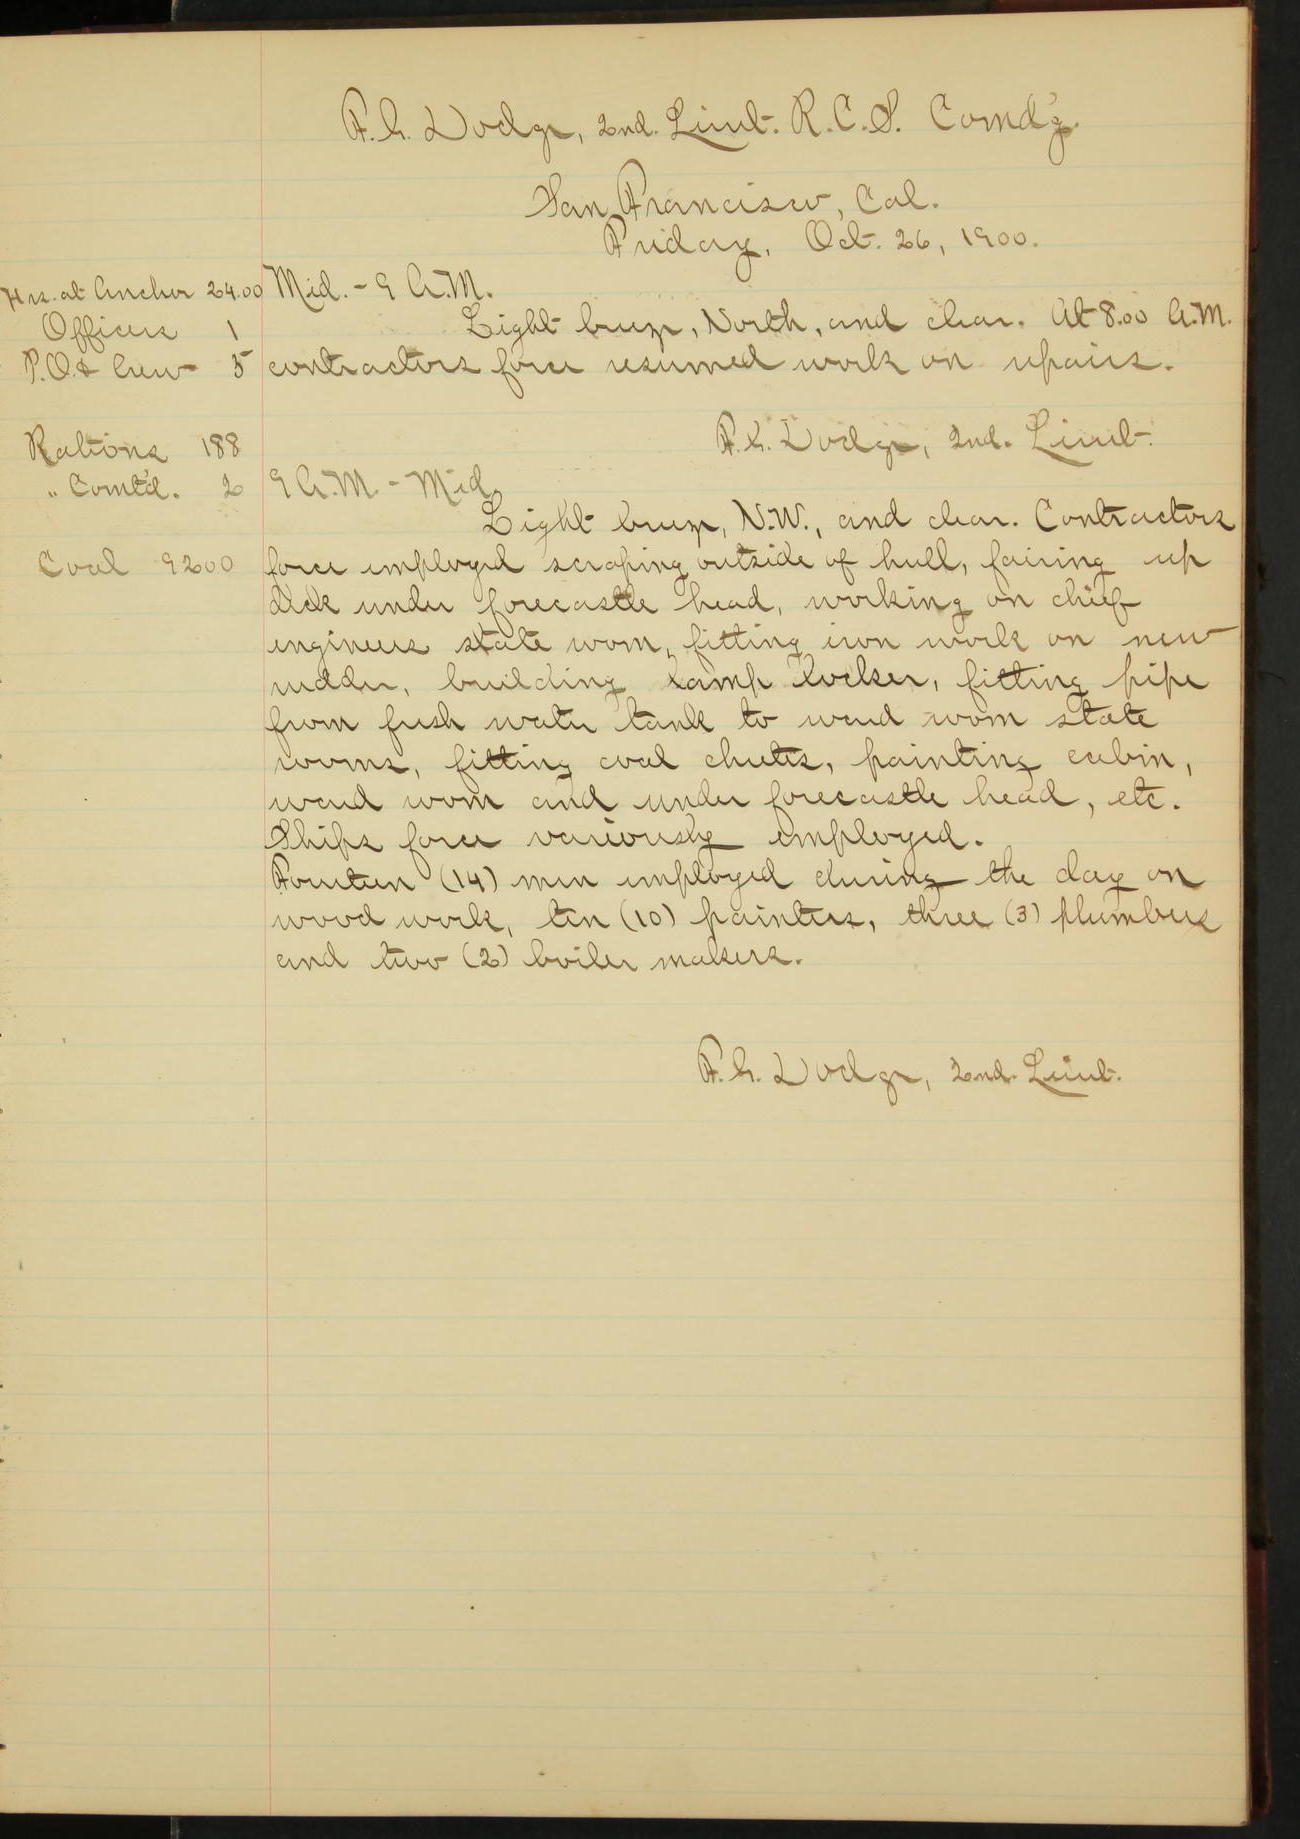 F.G. Dodge, 2nd. Lieut. R.C.S. Comd'g.
San Francisco, Cal.
Friday, Oct. 26, 1900.
Hrs. at Anchor 24.00 Mid. - 9 A.M.
Officers 1 Light breeze, North, and clear. At 8.00 A.M.
P.O. & Crew 5 contractors force resumed work on repairs.
F.G. Dodge, 2nd. Lieut.
Rations 188
" Comt'd. 2 9 A.M. - Mid.
Light breeze, N.W., and clear. Contractors
Coal 9200 force employed scraping outside of hull, fairing up
deck under forecastle head, working on chief
engineers state room, fitting iron work on new
rudder, building lamp locker, fitting pipe
from fresh water tank to ward room state
rooms, fitting coal chutes, painting cabin,
ward room and under forecastle head, etc.
Ships force variously employed.
Fourteen (14) men employed during the day on
wood work, ten (10) painters, three (3) plumbers
and two (2) boiler makers.
F.G. Dodge, 2nd. Lieut.